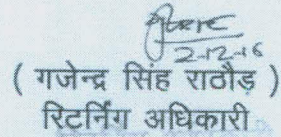 2-12-16
( गजेन्द्र सिंह राठौड़ )
रिटर्निंग अधिकारी